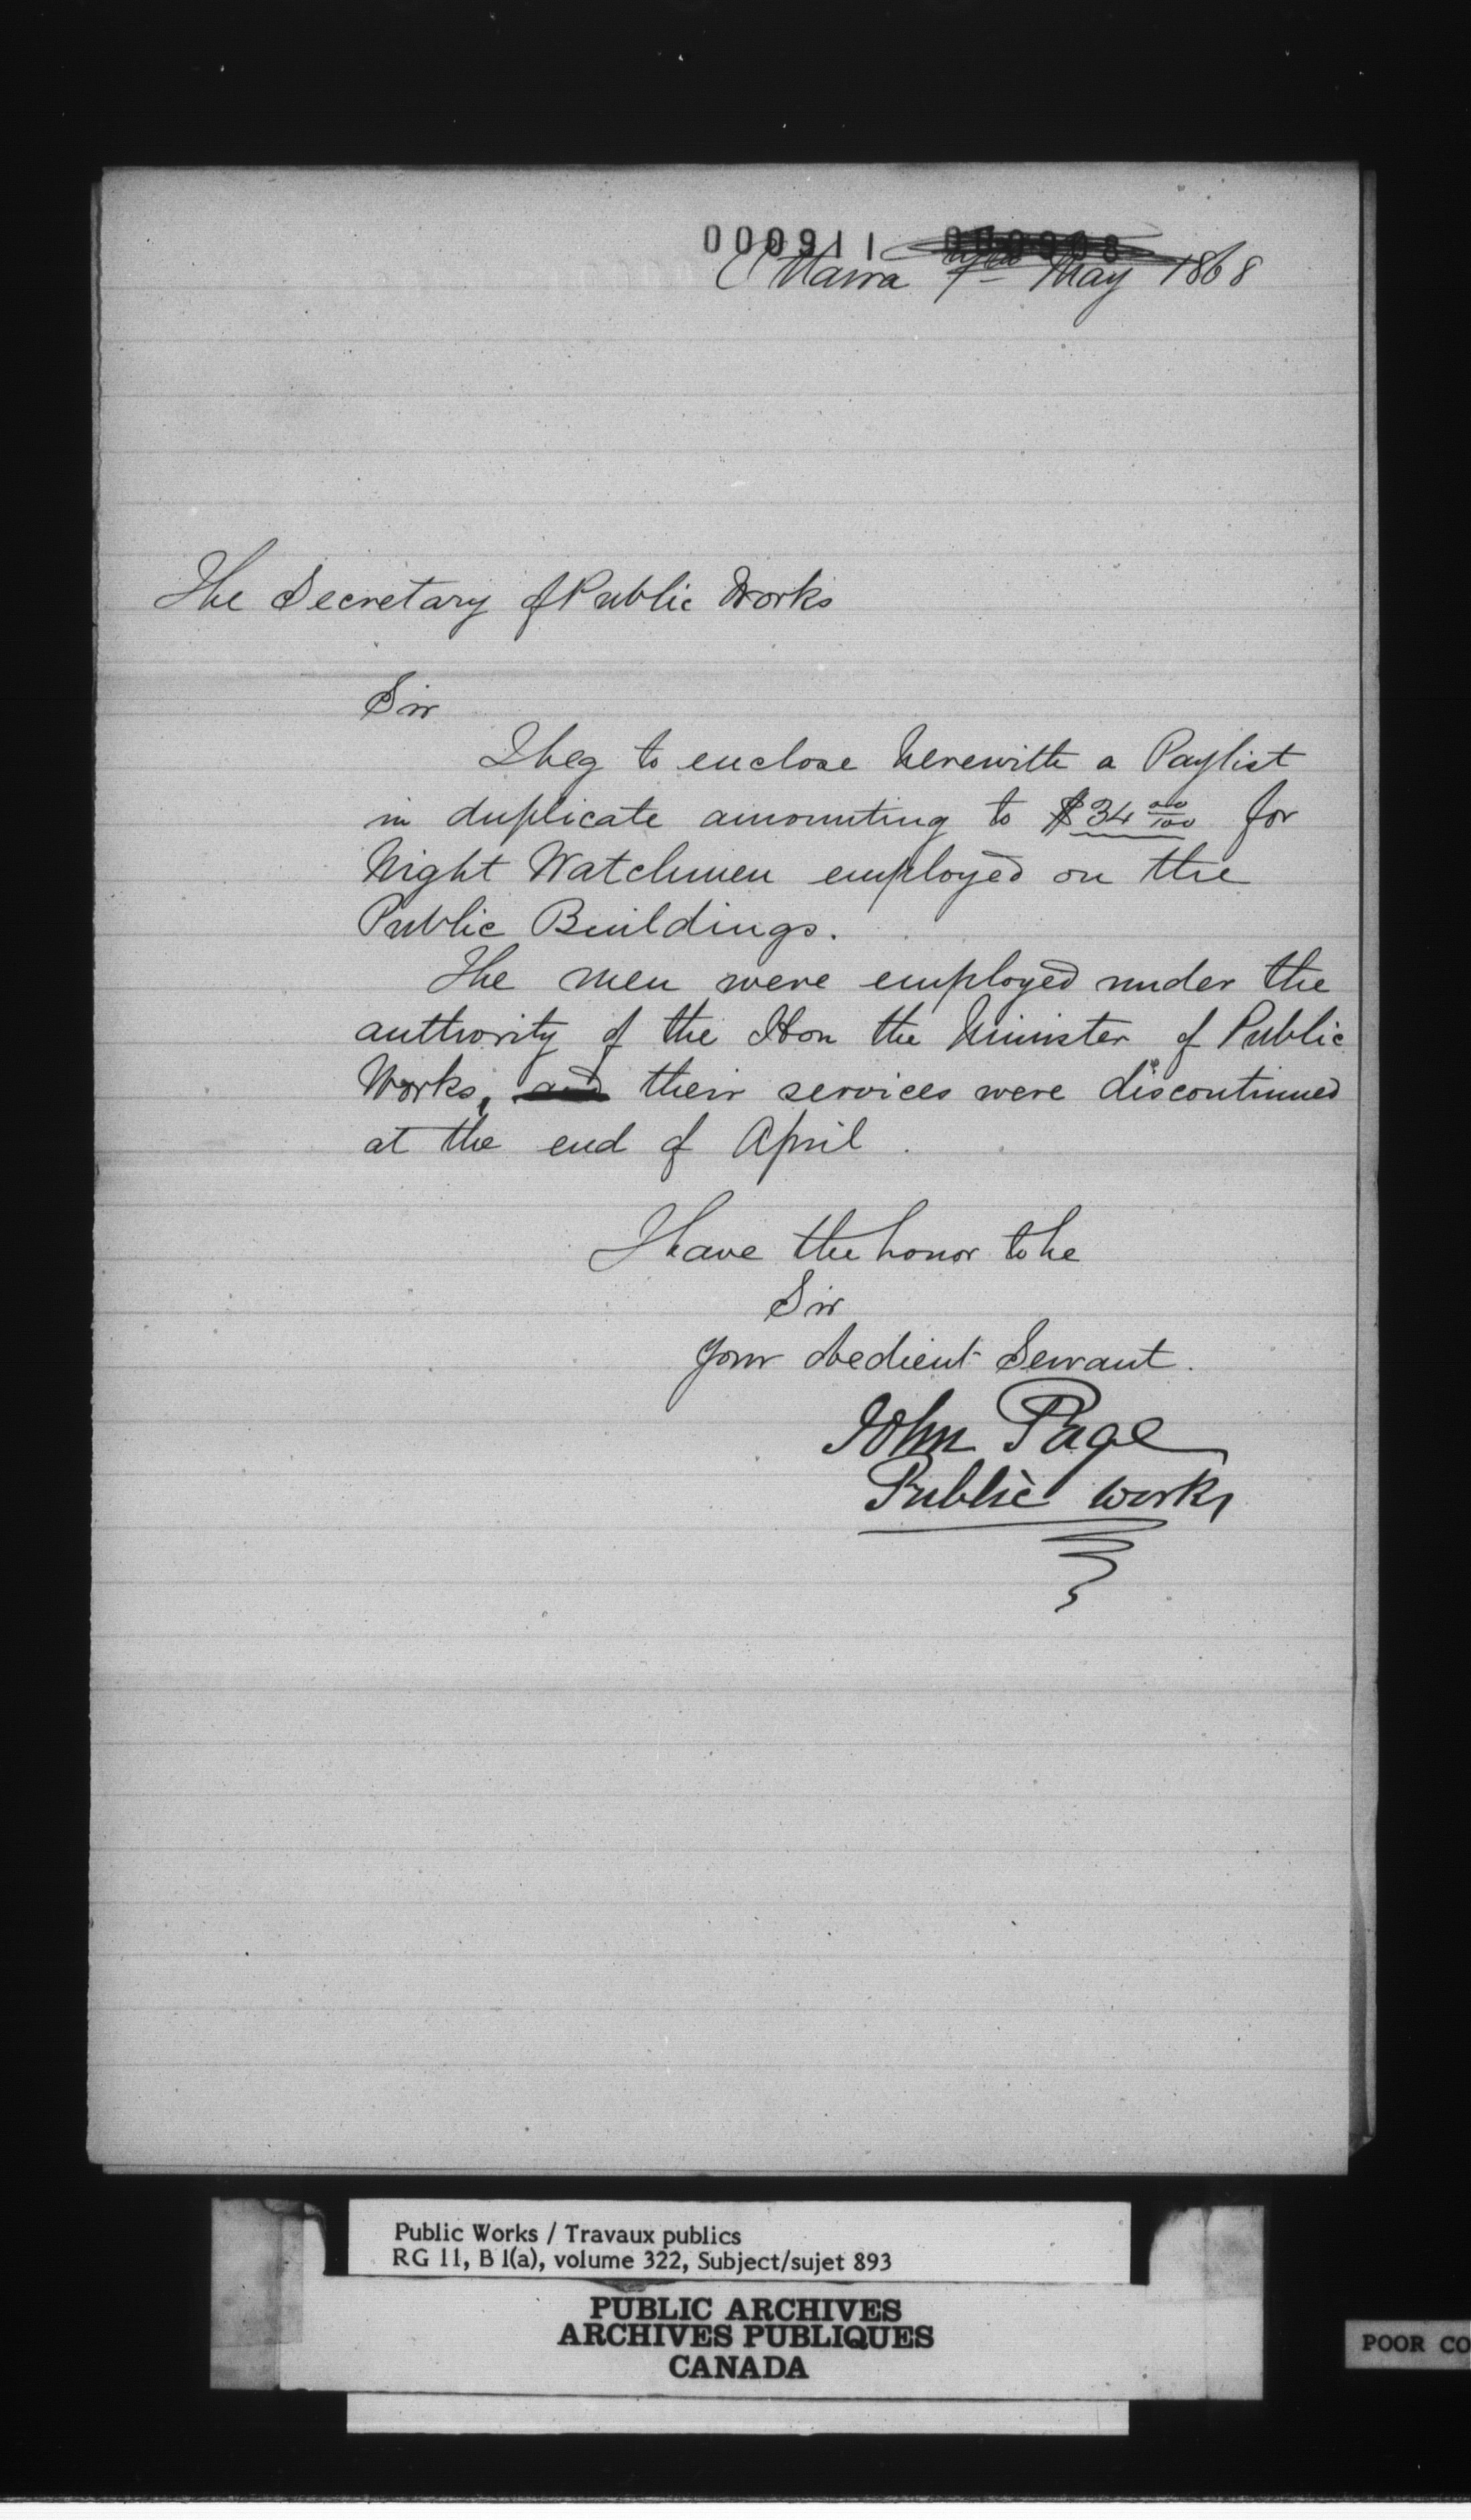 000911 000908
Ottawa 7th May 1868
The Secretary of Public Works
Sir
I beg to enclose herewith a Paylist
in duplicate amounting to $34 00/100 for
Night Watchmen employed on the
Public Buildings.
The men were employed under the
authority of the Hon the Minister of Public
Works, and their services were discontinued
at the end of April.
I have the honor to be
Sir
Your obedient Servant.
John Page
Public Works
Public Works / Travaux publics
RG 11, B 1(a), volume 322, Subject/sujet 893
PUBLIC ARCHIVES
ARCHIVES PUBLIQUES
CANADA
POOR CO